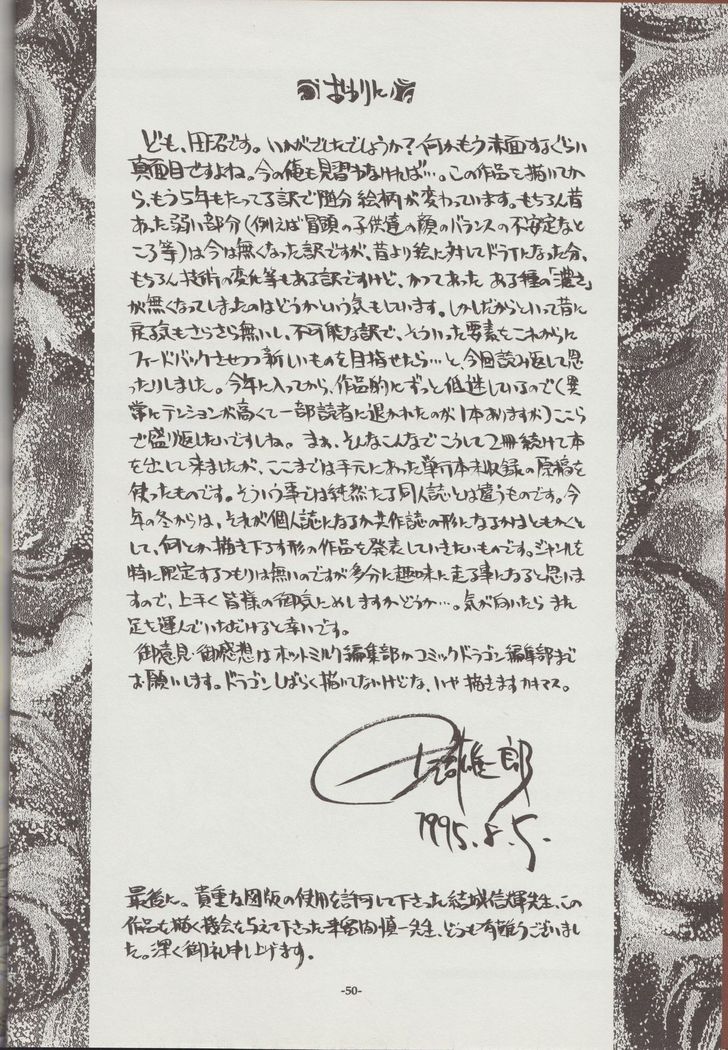 おわりに
ども、田沼です。いかがでしたでしょうか?何かもう赤面するぐらい
真面目ですよね。今の俺も見習わなければ…。この作品を描いてか
ら、もう5年もたってる訳で随分絵柄が変わっています。もちろん昔
あった弱い部分(例えば冒頭の子供達の顔のバランスの不安定なと
ころ等)は今は無くなった訳ですが、昔より絵に対してドライになった分、
もちろん技術の変化等もある訳ですけど、かつてあった ある種の「濃さ」
が無くなってしまったのはどうかという気もしています。しかしだからといって昔に
戻る気もさらさら無いし、不可能な訳で、そういった要素をこれからに
フィードバックさせつつ新しいものを目指せたら…と、今回読み返して思
ったりしました。今年に入ってから、作品的にずっと低迷しているので(異
常にテンションが高くて一部読者に退かれたのが1本ありますが)ここら
で盛り返したいですしね。まぁ、そんなこんなでこうして2冊続けて本
を出して来ましたが、ここまでは手元にあった単行本未収録の原稿を
使ったものです。そういう事では純然たる同人誌とは違うものです。今
年の冬からは、それが個人誌になるか共作誌の形になるかはともかくと
して、何とか描き下ろす形の作品を発表していきたいものです。ジャンルを
特に限定するつもりは無いのですが多分に趣味に走る事になると思いま
すので、上手く皆様の御気にめしますかどうか…。気が向いたら また
足を運んでいただけると幸いです。
御意見・御感想はホットミルク編集部かコミックドラゴン編集部まで
お願いします。ドラゴンしばらく描いてないけどな、いや描きますカキマス。
雄一郎
1995.8.5.
最後に。貴重な図版の使用を許可して下さった結城信輝先生、この
作品を描く機会を与えて下さった來留間慎一先生、どうも有難うございまし
た。深く御礼申し上げます。
-50-